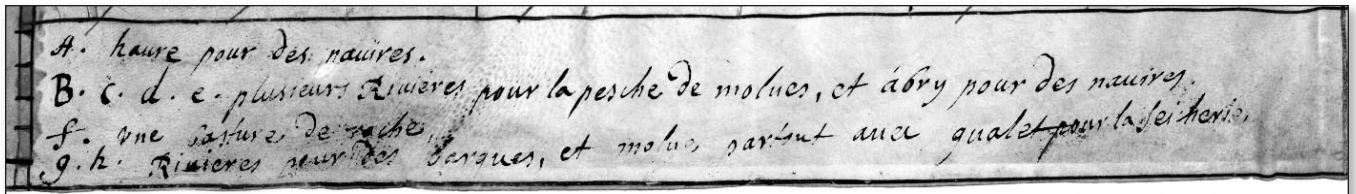 A. haure pour des nauires.
B. c. d. e. plusieurs Riuieres pour la pesche de molues, et abry pour des nauires.
f. vne basture de roche
g. h. Riuieres pour des barques, et molue partout auec gualet pour la seicherie.